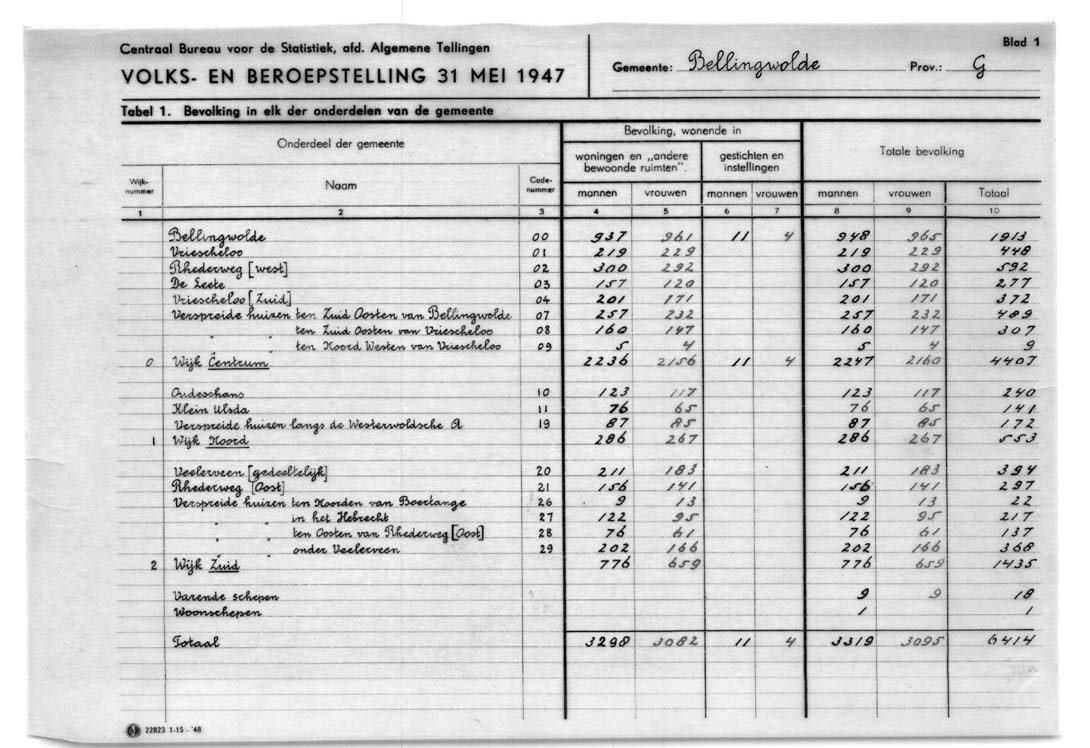 Centraal Bureau voor de Statistiek, afd. Algemene Tellingen
VOLKS- EN BEROEPSTELLING 31 MEI 1947
Gemeente: Bellingwolde Prov.: G
Blad 1
Tabel 1. Bevolking in elk der onderdelen van de gemeente
Onderdeel der gemeente
Bevolking, wonende in
Totale bevolking
woningen en „andere bewoonde ruimten".
gestichten en instellingen
Wijk-nummer Naam Code-nummer mannen vrouwen mannen vrouwen mannen vrouwen Totaal
1 2 3 4 5 6 7 8 9 10
Bellingwolde 00 937 961 11 4 948 965 1913
Vriescheloo 01 219 229 219 229 448
Rhederweg [west] 02 300 292 300 292 592
De Leete 03 157 120 157 120 277
Vriescheloo [Zuid] 04 201 171 201 171 372
Verspreide huizen ten Zuid Oosten van Bellingwolde 07 257 232 257 232 489
" " ten Zuid Oosten van Vriescheloo 08 160 147 160 147 307
" " ten Noord Westen van Vriescheloo 09 5 4 5 4 9
0 Wijk Centrum 2236 2156 11 4 2247 2160 4407
Oudeschans 10 123 117 123 117 240
Klein Ulsda 11 76 65 76 65 141
Verspreide huizen langs de Westerwoldsche A 19 87 85 87 85 172
1 Wijk Noord 286 267 286 267 553
Veelerveen [gedeeltelijk] 20 211 183 211 183 394
Rhederweg [Oost] 21 156 141 156 141 297
Verspreide huizen ten Noorden van Boertange 26 9 13 9 13 22
" " in het Hebrecht 27 122 95 122 95 217
" " ten Oosten van Rhederweg [Oost] 28 76 61 76 61 137
" " onder Veelerveen 29 202 166 202 166 368
2 Wijk Zuid 776 659 776 659 1435
Varende schepen 9 9 18
Woonschepen 1 1
Totaal 3298 3082 11 4 3319 3095 6414
22823 1-15 - '48